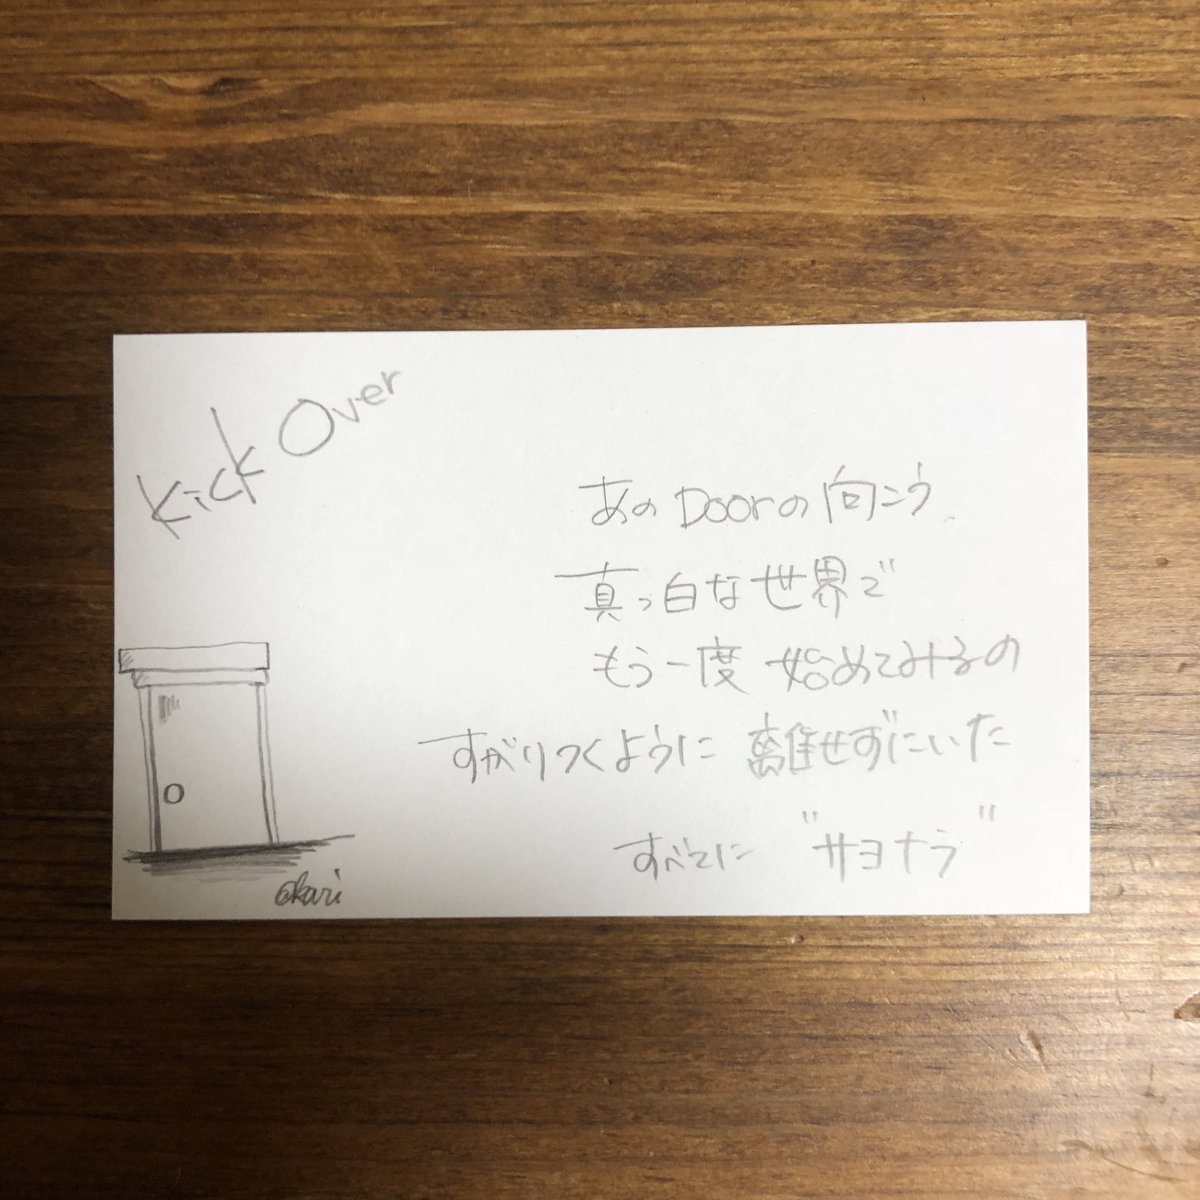 Kick Over
あの Doorの向こう
真っ白な世界で
もう一度 始めてみるの
すがりつくように 離せずにいた
すべてに "サヨナラ"
akari